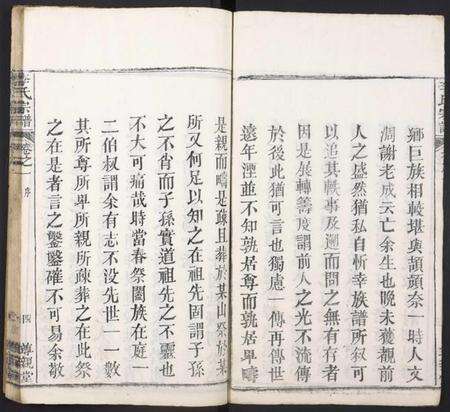 鄉巨族相較堪與頡頏奈一時人文
凋謝老成云亡余生也晚未獲覩前
人之盛然猶私自忻幸族譜所叙可
以追其軼事及遡而問之無有存者
因是展轉籌度謂前人之光不流傳
於後此猶可言也獨慮一傳再傳世
遠年湮並不知孰居尊而孰居卑疇
是親而疇是疎且葬於某山祭於某
所又何足以知之在祖先固謂子孫
之不肖而子孫實道祖先之不靈也
不大可痛哉時當春祭闔族在庭一
二伯叔謂余有志不没先世一一數
其所尊所卑所親所疎葬之在此祭
之在是者言之鑿鑿確不可易余敬
氏宗譜
卷之一
序
四
尊親堂